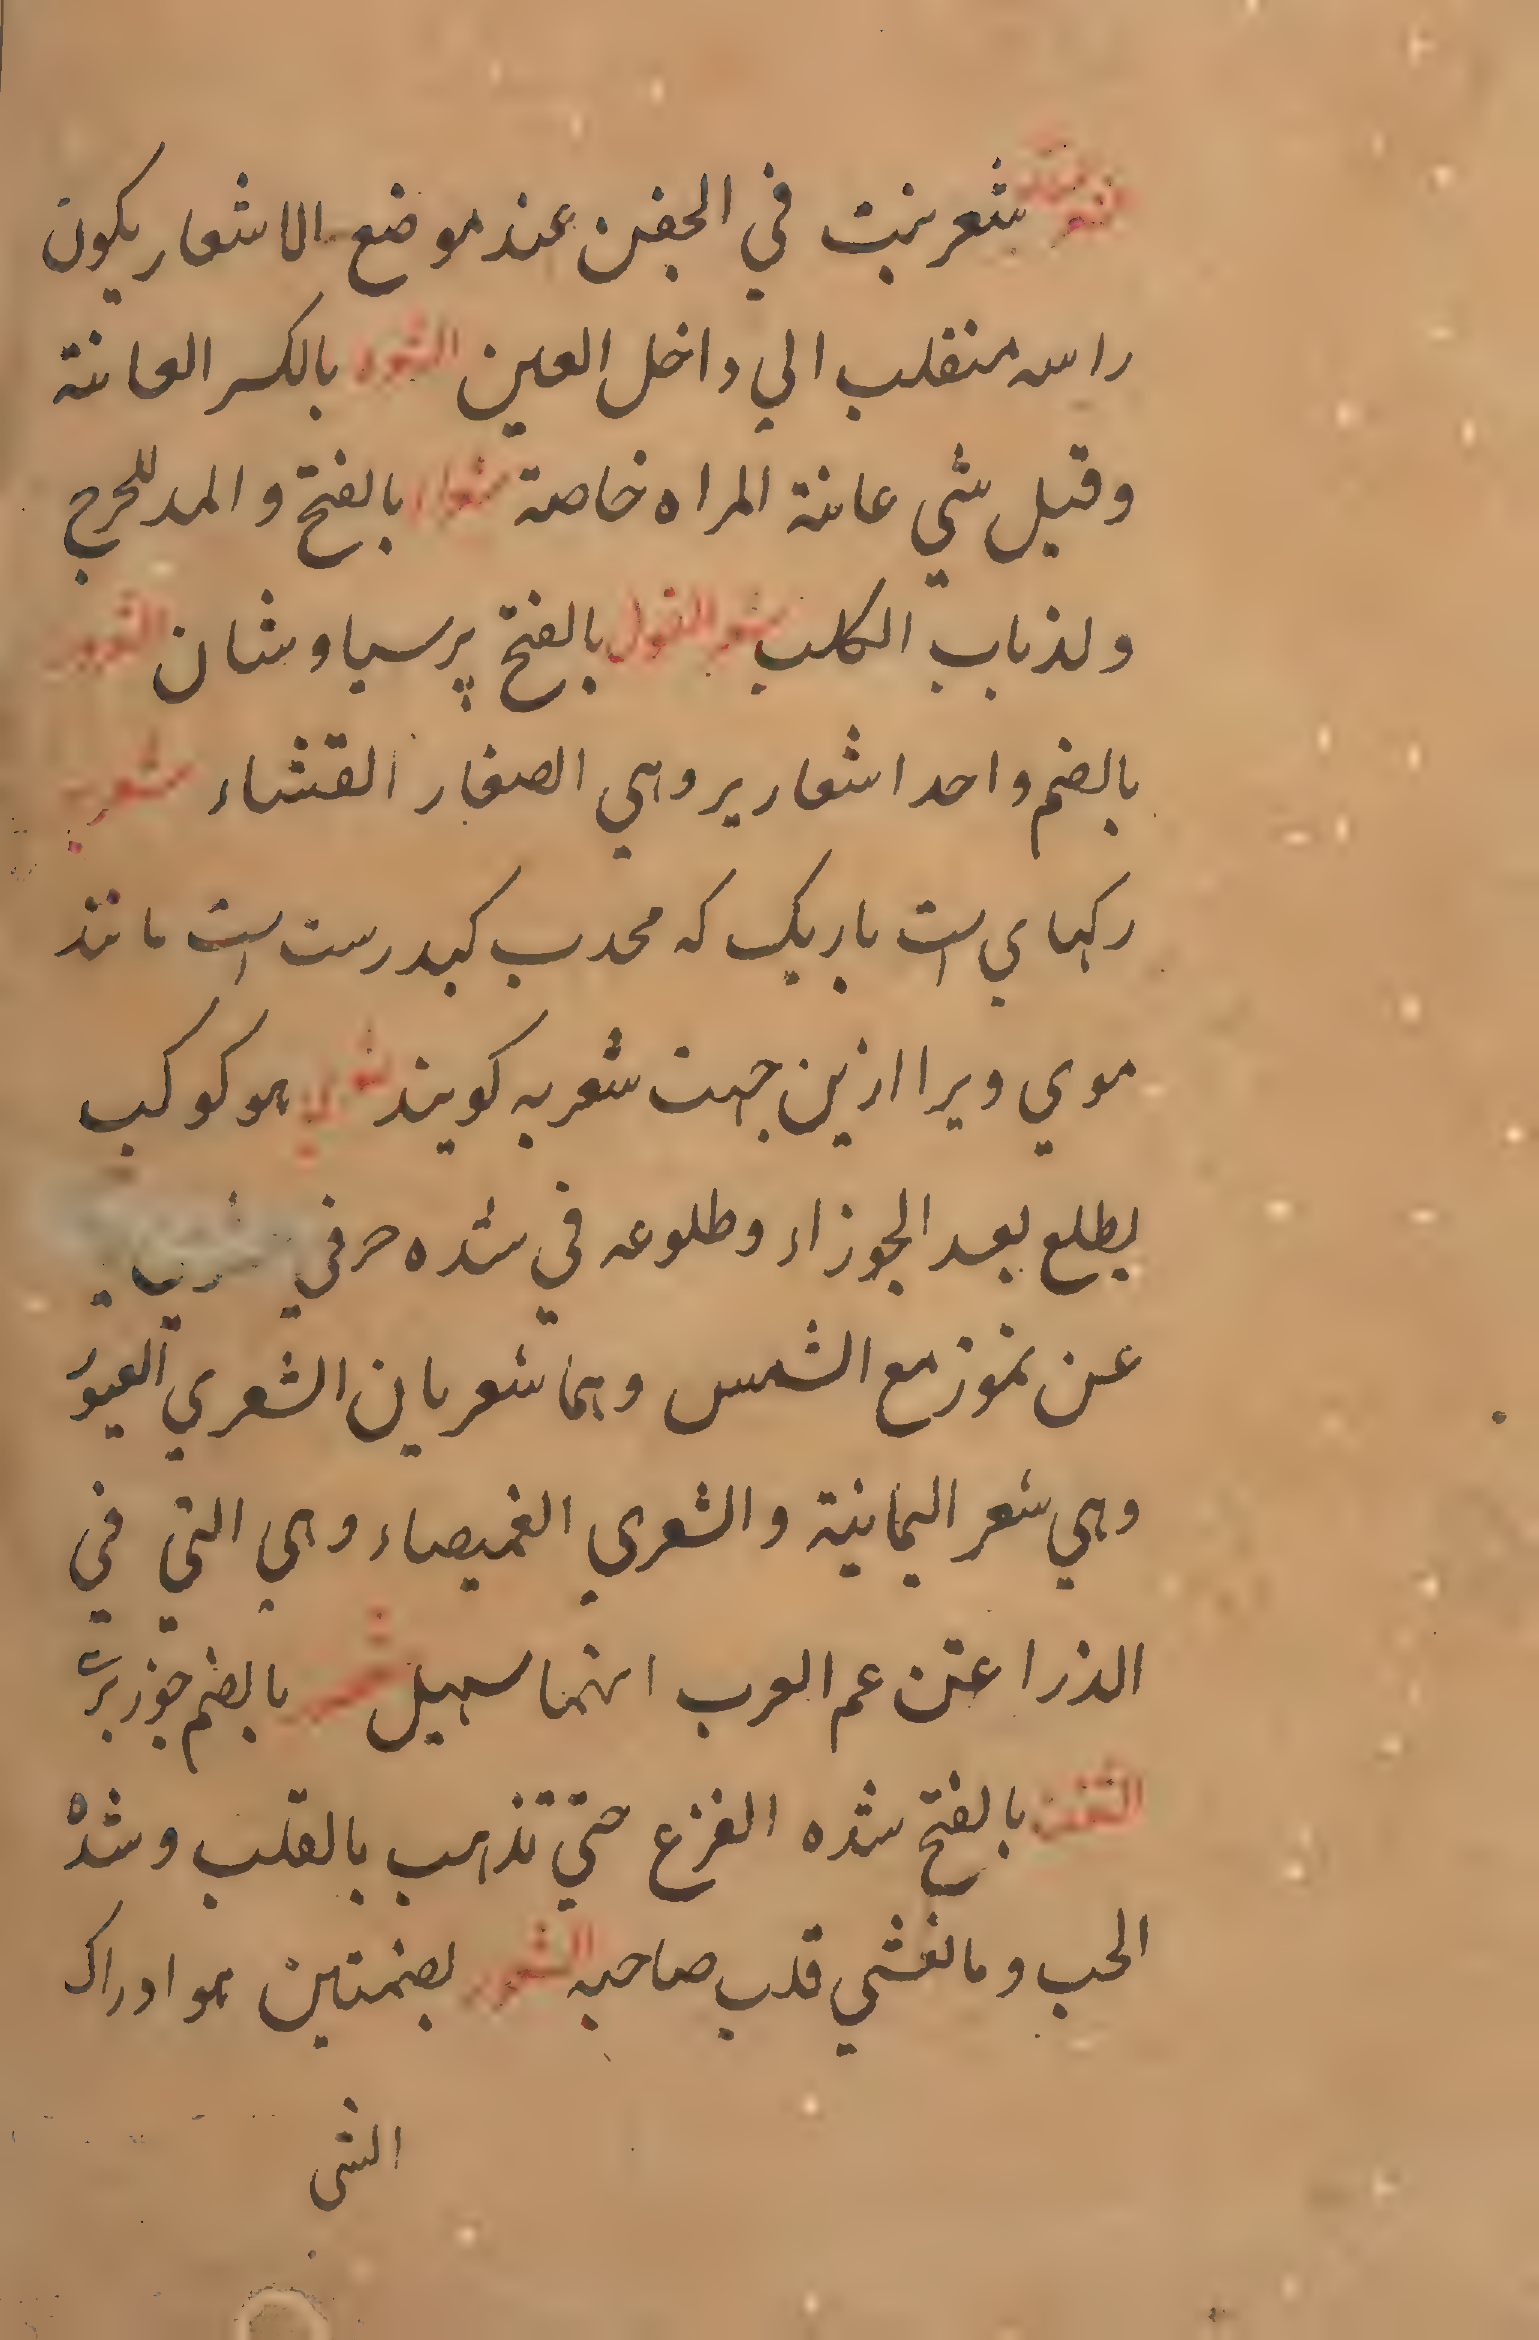 شعر ينبت في الجفن عند موضع الاشعار يكون
راسه منقلب الي داخل العين بالكسر العانة
وقيل شي عانة المراه خاصة بالفتح والمد للخرج
ولذباب الكلب شعر الغول بالفتح پرسياوشان
بالضم واحد اشعارير وهي الصغار القثاء شعريه
ركهاي است باريك كه محدب كبد رست است مانند
موي ويرا ازين جهت شعريه كويند هو كوكب
يطلع بعد الجوزاء وطلوعه في شده حرفي
عن تموز مع الشمس وهما شعريان الشعري العبور
وهي شعر اليمانية والشعري الغميصاء وهي التي في
الذراعين عم العرب انهما سهيل بالضم
بالفتح شده الفزع حتي تذهب بالقلب وشده
الحب وما تغشي قلب صاحبه الشعور بضمتين هو ادراك
الشي